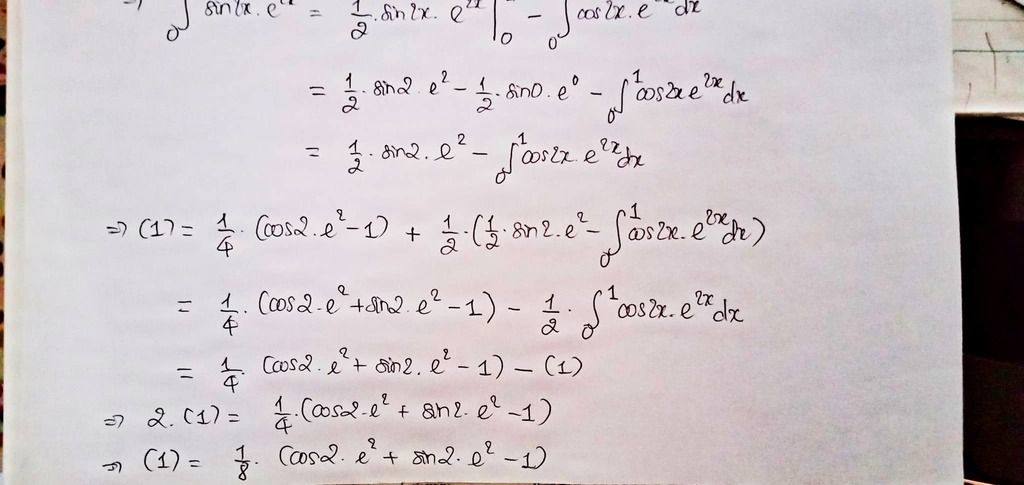 => ∫₀ sin2x. e²ˣ = 1/2. sin2x. e²ˣ |₀ - ∫₀ cos2x. e dx
= 1/2. sin2. e² - 1/2. sin0. e⁰ - ∫₀¹ cos2x e²ˣ dx
= 1/2. sin2. e² - ∫₀¹ cos2x. e²ˣ dx
=> (1) = 1/4. (cos2. e² - 1) + 1/2. (1/2. sin2. e² - ∫₀¹ cos2x. e²ˣ dx)
= 1/4. (cos2. e² + sin2. e² - 1) - 1/2. ∫₀¹ cos2x. e²ˣ dx
= 1/4. (cos2. e² + sin2. e² - 1) - (1)
=> 2. (1) = 1/4. (cos2. e² + sin2. e² - 1)
=> (1) = 1/8. (cos2. e² + sin2. e² - 1)